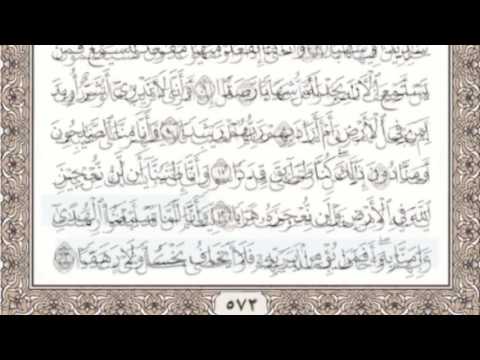 يَسْتَمِعِ الْآنَ يَجِدْ لَهُ شِهَابًا رَّصَدًا ۝٩ وَأَنَّا لَا نَدْرِي أَشَرٌّ أُرِيدَ
بِمَن فِي الْأَرْضِ أَمْ أَرَادَ بِهِمْ رَبُّهُمْ رَشَدًا ۝١٠ وَأَنَّا مِنَّا الصَّالِحُونَ
وَمِنَّا دُونَ ذَٰلِكَ ۖ كُنَّا طَرَائِقَ قِدَدًا ۝١١ وَأَنَّا ظَنَنَّا أَن لَّن نُّعْجِزَ
اللَّهَ فِي الْأَرْضِ وَلَن نُّعْجِزَهُ هَرَبًا ۝١٢ وَأَنَّا لَمَّا سَمِعْنَا الْهُدَىٰ
آمَنَّا بِهِ ۖ فَمَن يُؤْمِن بِرَبِّهِ فَلَا يَخَافُ بَخْسًا وَلَا رَهَقًا ۝١٣
٥٧٢